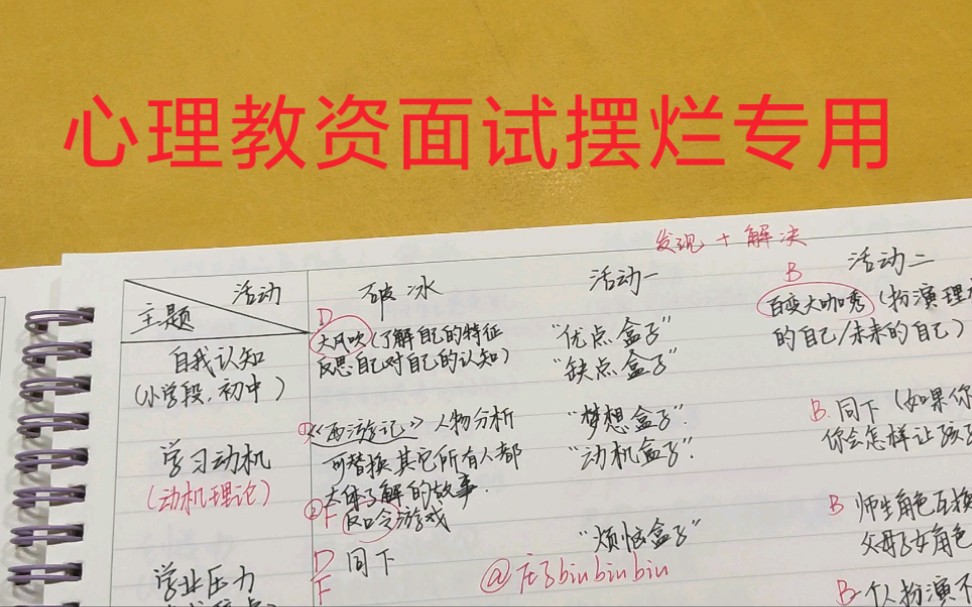 心理教资面试摆烂专用
发现 + 解决
活动
主题
破冰
活动一
活动二
自我认知
(小学段,初中)
D
大风吹(了解自己的特征
反思自己对自己的认知)
"优点盒子"
"缺点盒子"
B
百变大咖秀(扮演理
的自己/未来的自己)
学习动机
(动机理论)
①《西游记》人物分析
可替换其它所有人都
大体了解的故事.
② F 反口令游戏
"梦想盒子"
"动机盒子"
B 同下(如果你
你会怎样让孩子
学业压力
D 同下
F
"烦恼盒子"
B 师生角色互换
父母子女角色
B 个人扮演不